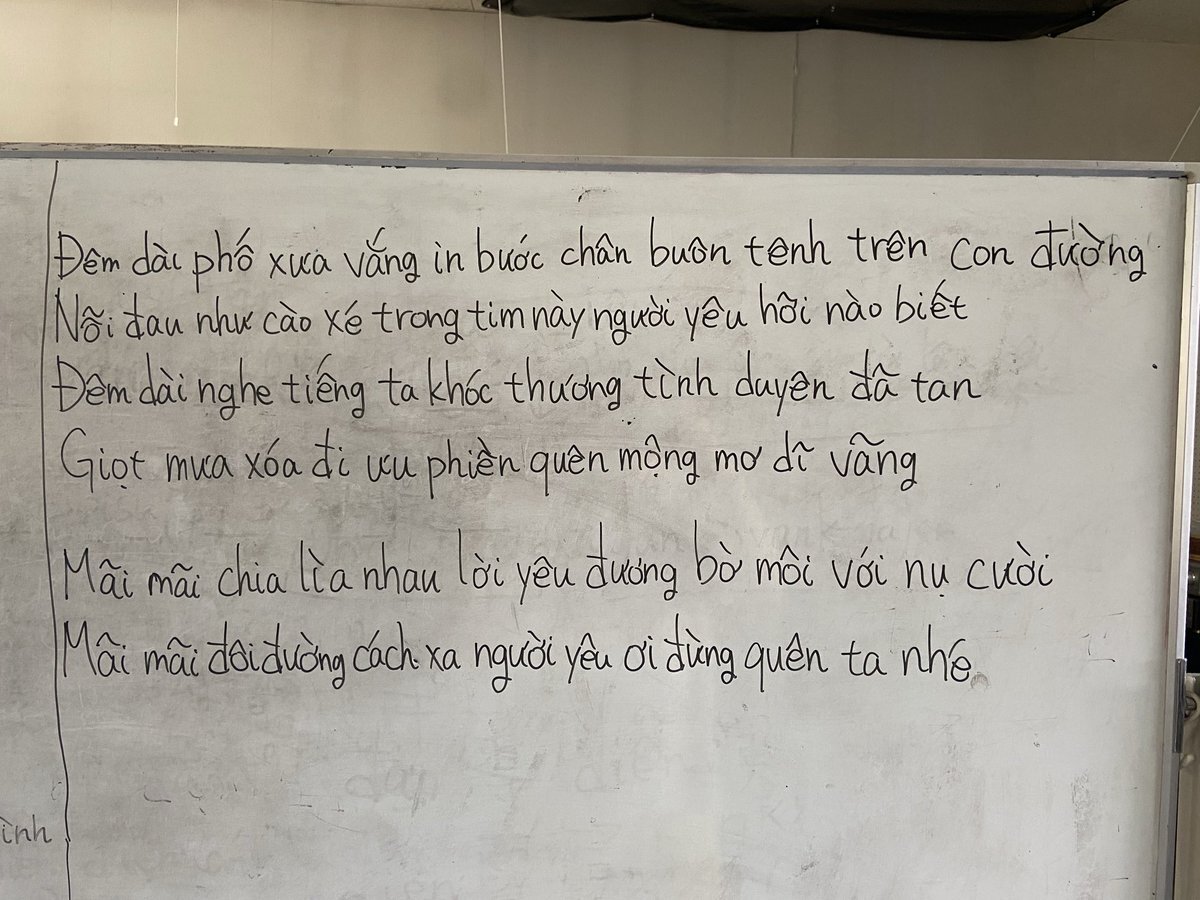 Đêm dài phố xưa vắng in bước chân buôn tênh trên con đường
Nỗi đau như cào xé trong tim này người yêu hỡi nào biết
Đêm dài nghe tiếng ta khóc thương tình duyên đã tan
Giọt mưa xóa đi ưu phiền quên mộng mơ dĩ vãng
Mãi mãi chia lìa nhau lời yêu đương bờ môi với nụ cười
Mãi mãi đôi đường cách xa người yêu ơi đừng quên ta nhé
ình